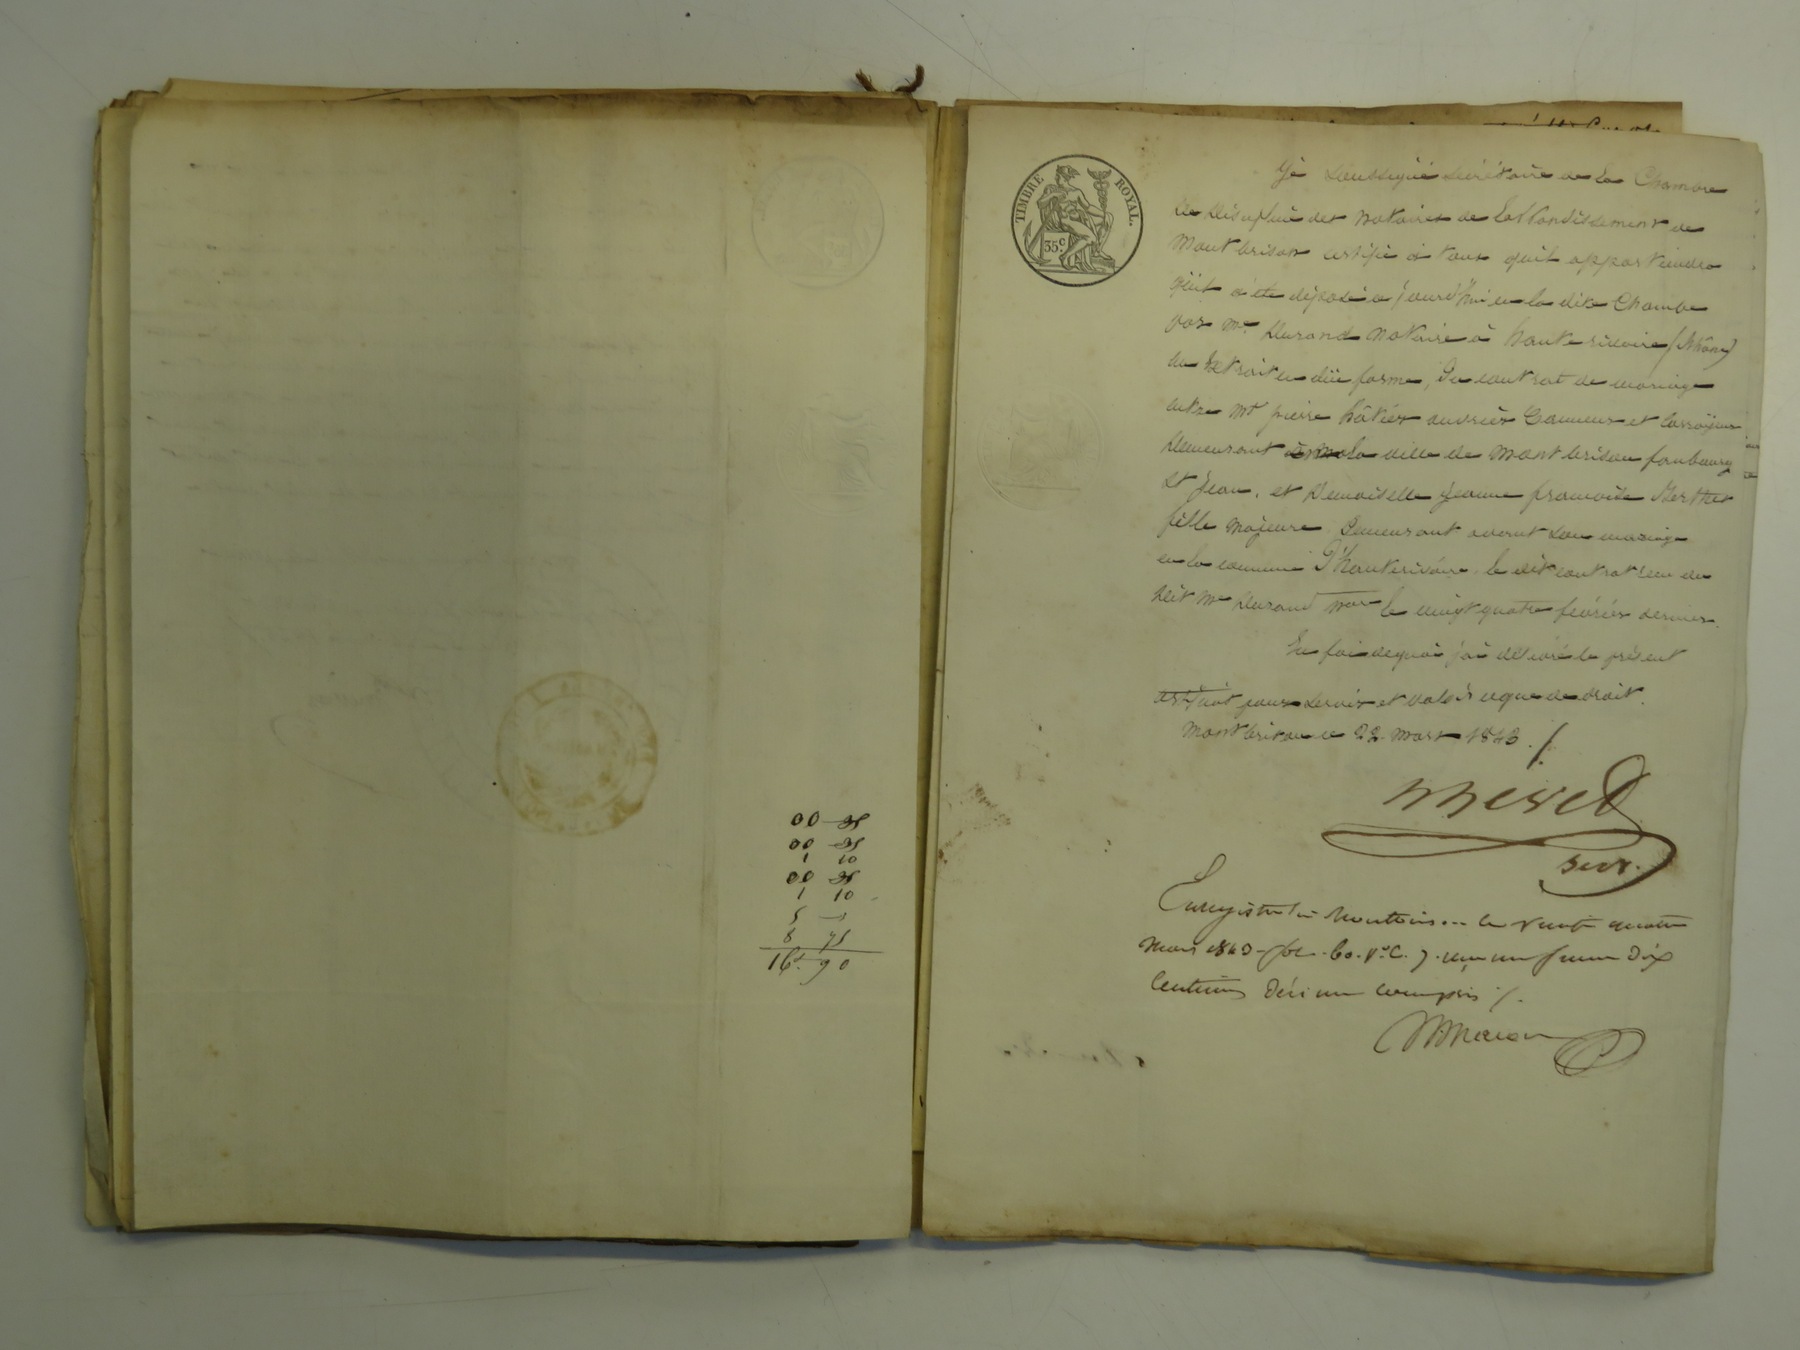 00 35
00 35
1 10
00 35
1 10
5 —
8 75
16f. 90
TIMBRE ROYAL.
35c
Je soussigné secrétaire de la Chambre
de discipline des notaires de l'arrondissement de
Montbrison certifie à tous qu'il appartiendra
qu'il a été déposé ce jourd'hui en la dite Chambre
par Me Durand notaire à hauterivoire (Rhône)
un Extrait en due forme, du contrat de mariage
entre Mr pierre hâtier ouvrier tanneur et corroyeur
demeurant la ville de Montbrison faubourg
st jean, et Demoiselle jeanne francoise Berther
fille majeure demeurant avant son mariage
en la commune D'hauterivoire. le dit contrat recu du
dit Me durand nore le vingt quatre février dernier.
En foi de quoi j'ai délivré le présent
extrait pour servir et valoir ce que de droit.
Montbrison ce 22 mars 1843 ./.
secr.
Enregistré à Montbris... le vingt quatre
mars 1843 fol. 60. Vo. C. 7. reçu un franc Dix
Centimes Décime compris /.